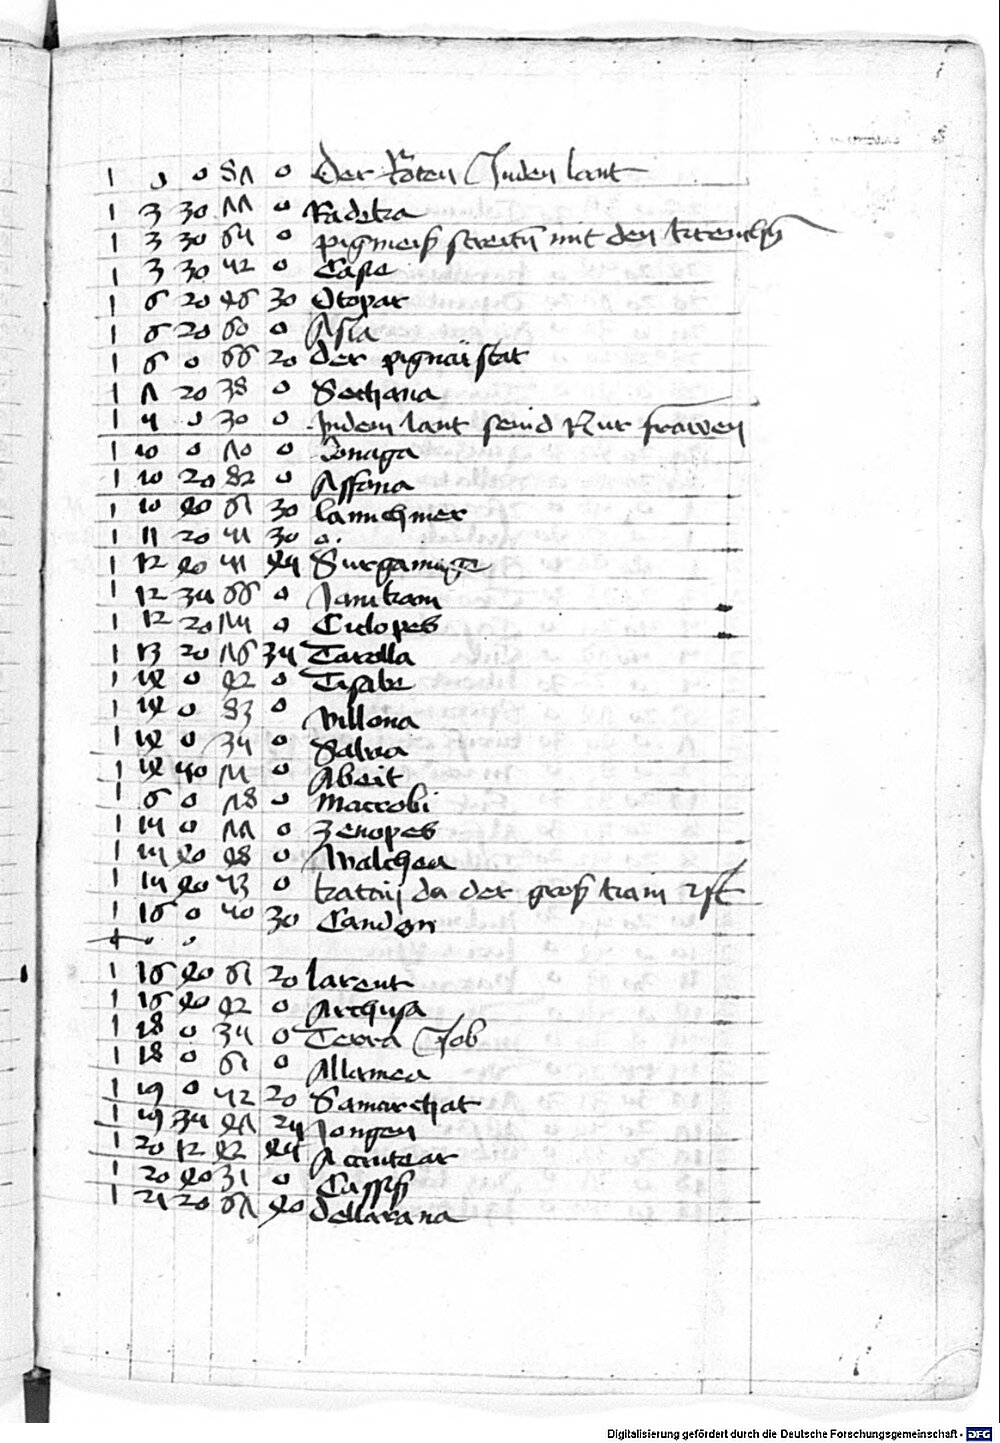 1 0 0 87 0 Der Roten Juden lant
1 3 30 77 0 Kadetza
1 3 30 65 0 pigmeiß streitn mit den krenchn
1 3 30 52 0 Caspe
1 6 20 46 30 Otopar
1 6 20 60 0 Asia
1 6 0 66 20 der pigmai stat
1 7 20 38 0 Sechana
1 5 0 30 0 Indem lant seind Nur frawen
1 10 0 70 0 Conaga
1 10 20 82 0 Assona
1 10 40 61 30 lamchmer
1 11 20 51 30 o.
1 12 40 51 45 Surgamage
1 12 35 66 0 Jamkam
1 12 20 75 0 Ciclopes
1 13 20 76 35 Tarolla
1 14 0 42 0 Tisabe
1 14 0 83 0 villona
1 14 0 35 0 Salua
1 14 50 75 0 Abeit
1 6 0 78 0 Macrobi
1 15 0 77 0 Zenopes
1 15 40 48 0 Malchea
1 15 40 53 0 katay da der groß kam ist
1 16 0 50 30 Candor
1 16 40 61 20 larent
1 16 40 42 0 Archusa
1 18 0 35 0 Terra Job
1 18 0 61 0 Allamea
1 19 0 52 20 Samarchat
1 19 35 47 25 Jongen
1 20 12 42 45 Accutear
1 20 40 31 0 Cassiß
1 21 20 67 40 Dellarana
Digitalisierung gefördert durch die Deutsche Forschungsgemeinschaft - DFG